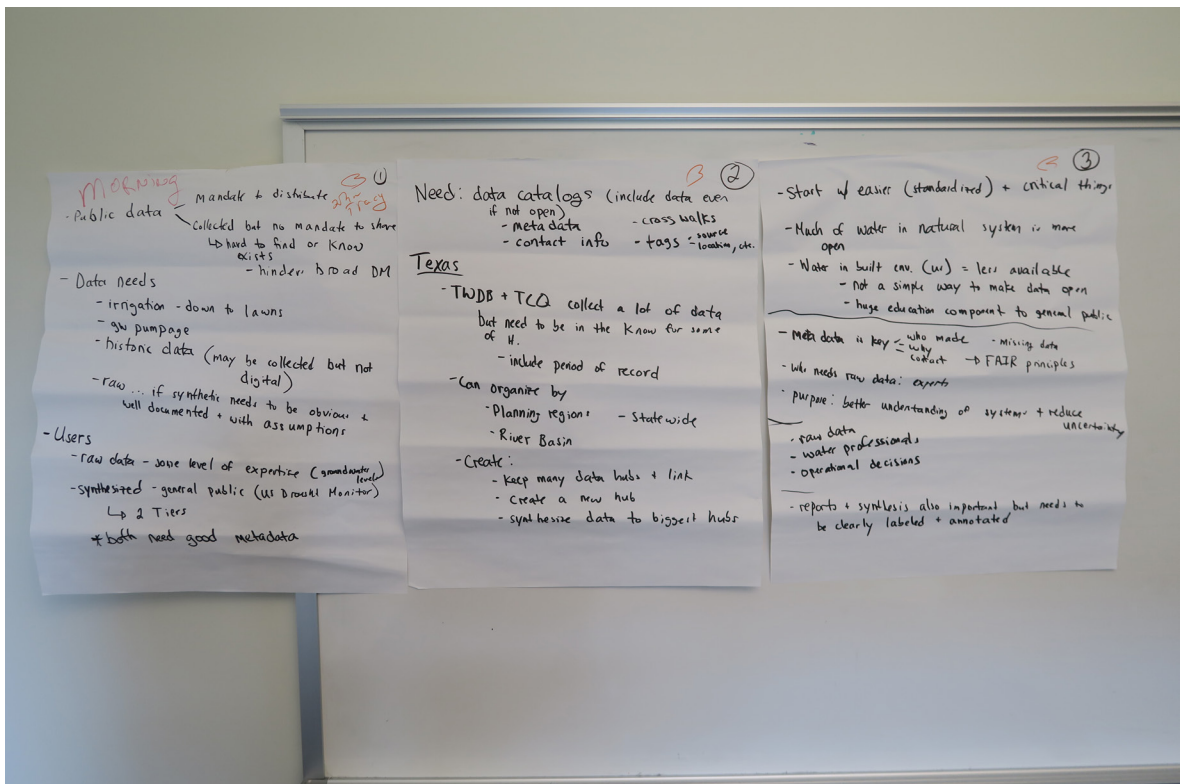 MORNING
①
- Public data
Mandate to distribute
Collected but no mandate to share
↳ hard to find or know
exists
- hinders broad DM
- Data needs
- irrigation - down to lawns
- gw pumpage
- historic data (may be collected but not
digital)
- raw ... if synthetic needs to be obvious +
well documented + with assumptions
- Users
- raw data - some level of expertise (groundwater
level)
- synthesized - general public (US Drought Monitor)
↳ 2 Tiers
* both need good metadata
②
Need: data catalogs (include data even
if not open)
- meta data
- contact info
- cross walks
- tags - source
- location, etc.
Texas
- TWDB + TCQ collect a lot of data
but need to be in the know for some
of it.
- include period of record
- Can organize by
- Planning regions - Statewide
- River Basin
- Create:
- Keep many data hubs + link
- Create a new hub
- synthesize data to biggest hubs
③
- Start w/ easier (standardized) + critical things
- Much of water in natural system is more
open
- Water in built env. = less available
- not a simple way to make data open
- huge education component to general public
- Meta data is key - who made
- why
contact
- missing data
→ FAIR principles
- who needs raw data: experts
- purpose: better understanding of systems + reduce
uncertainty
- raw data
- water professionals
- operational decisions
- reports + synthesis also important but needs to
be clearly labeled + annotated